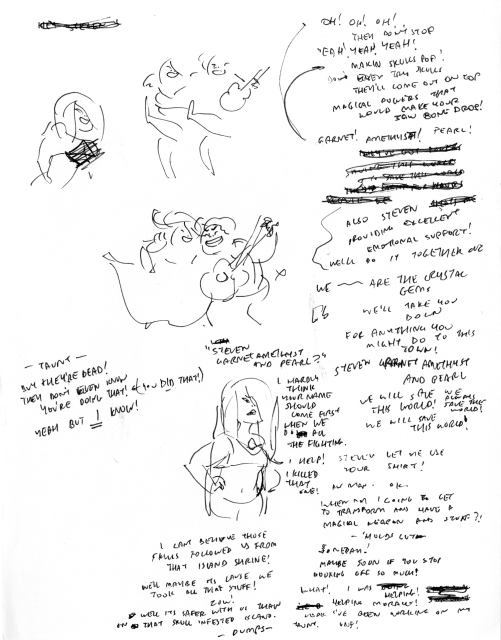 OH! OH! OH!
THEY DON'T STOP
YEAH! YEAH! YEAH!
MAKIN SKULLS POP!
THEY'LL COME OUT ON TOP
MAGICAL POWERS THAT
WOULD MAKE YOUR
JAW BONE DROP!
GARNET! AMETHYST! PEARL!
ALSO STEVEN
PROVIDING EXCELLENT
EMOTIONAL SUPPORT!
WE'LL DO IT TOGETHER
WE ARE THE CRYSTAL
GEMS
WE'LL TAKE YOU
DOWN
FOR ANYTHING YOU
MIGHT DO TO THIS
TOWN!
STEVEN GARNET AMETHYST
AND PEARL
WE WILL SAVE
THIS WORLD!
WE ALWAYS
SAVE THE
WORLD!
WE WILL SAVE
THIS WORLD!
- TAUNT -
BUT THEY'RE DEAD!
THEY DON'T EVEN KNOW
YOU'RE DOING THAT! (YOU DID THAT!)
YEAH BUT I KNOW!
"STEVEN
GARNET AMETHYST
AND PEARL?"
I HARDLY
THINK
YOUR NAME
SHOULD
COME FIRST
WHEN WE
DO ALL
THE FIGHTING.
I HELP!
I KILLED
THAT
ONE!
STEVEN LET ME USE
YOUR SHIRT!
AW MAN. OK.
WHEN AM I GOING TO GET
TO TRANSFORM AND HAVE A
MAGICAL WEAPON AND STUFF?!
SOMEDAY!
MAYBE SOON IF YOU STOP
GOOFING OFF SO MUCH!
WHAT! I WAS
HELPING!
HELPING MORALLY!
LOOK I'VE BEEN WORKING ON MY
TAUNT.
I CANT BELIEVE THOSE
SKULLS FOLLOWED US FROM
THAT ISLAND SHRINE!
WELL MAYBE ITS CAUSE WE
TOOK ALL THAT STUFF!
WELL ITS SAFER WITH US THAN
ON THAT SKULL INFESTED ISLAND.
- DUMPS -